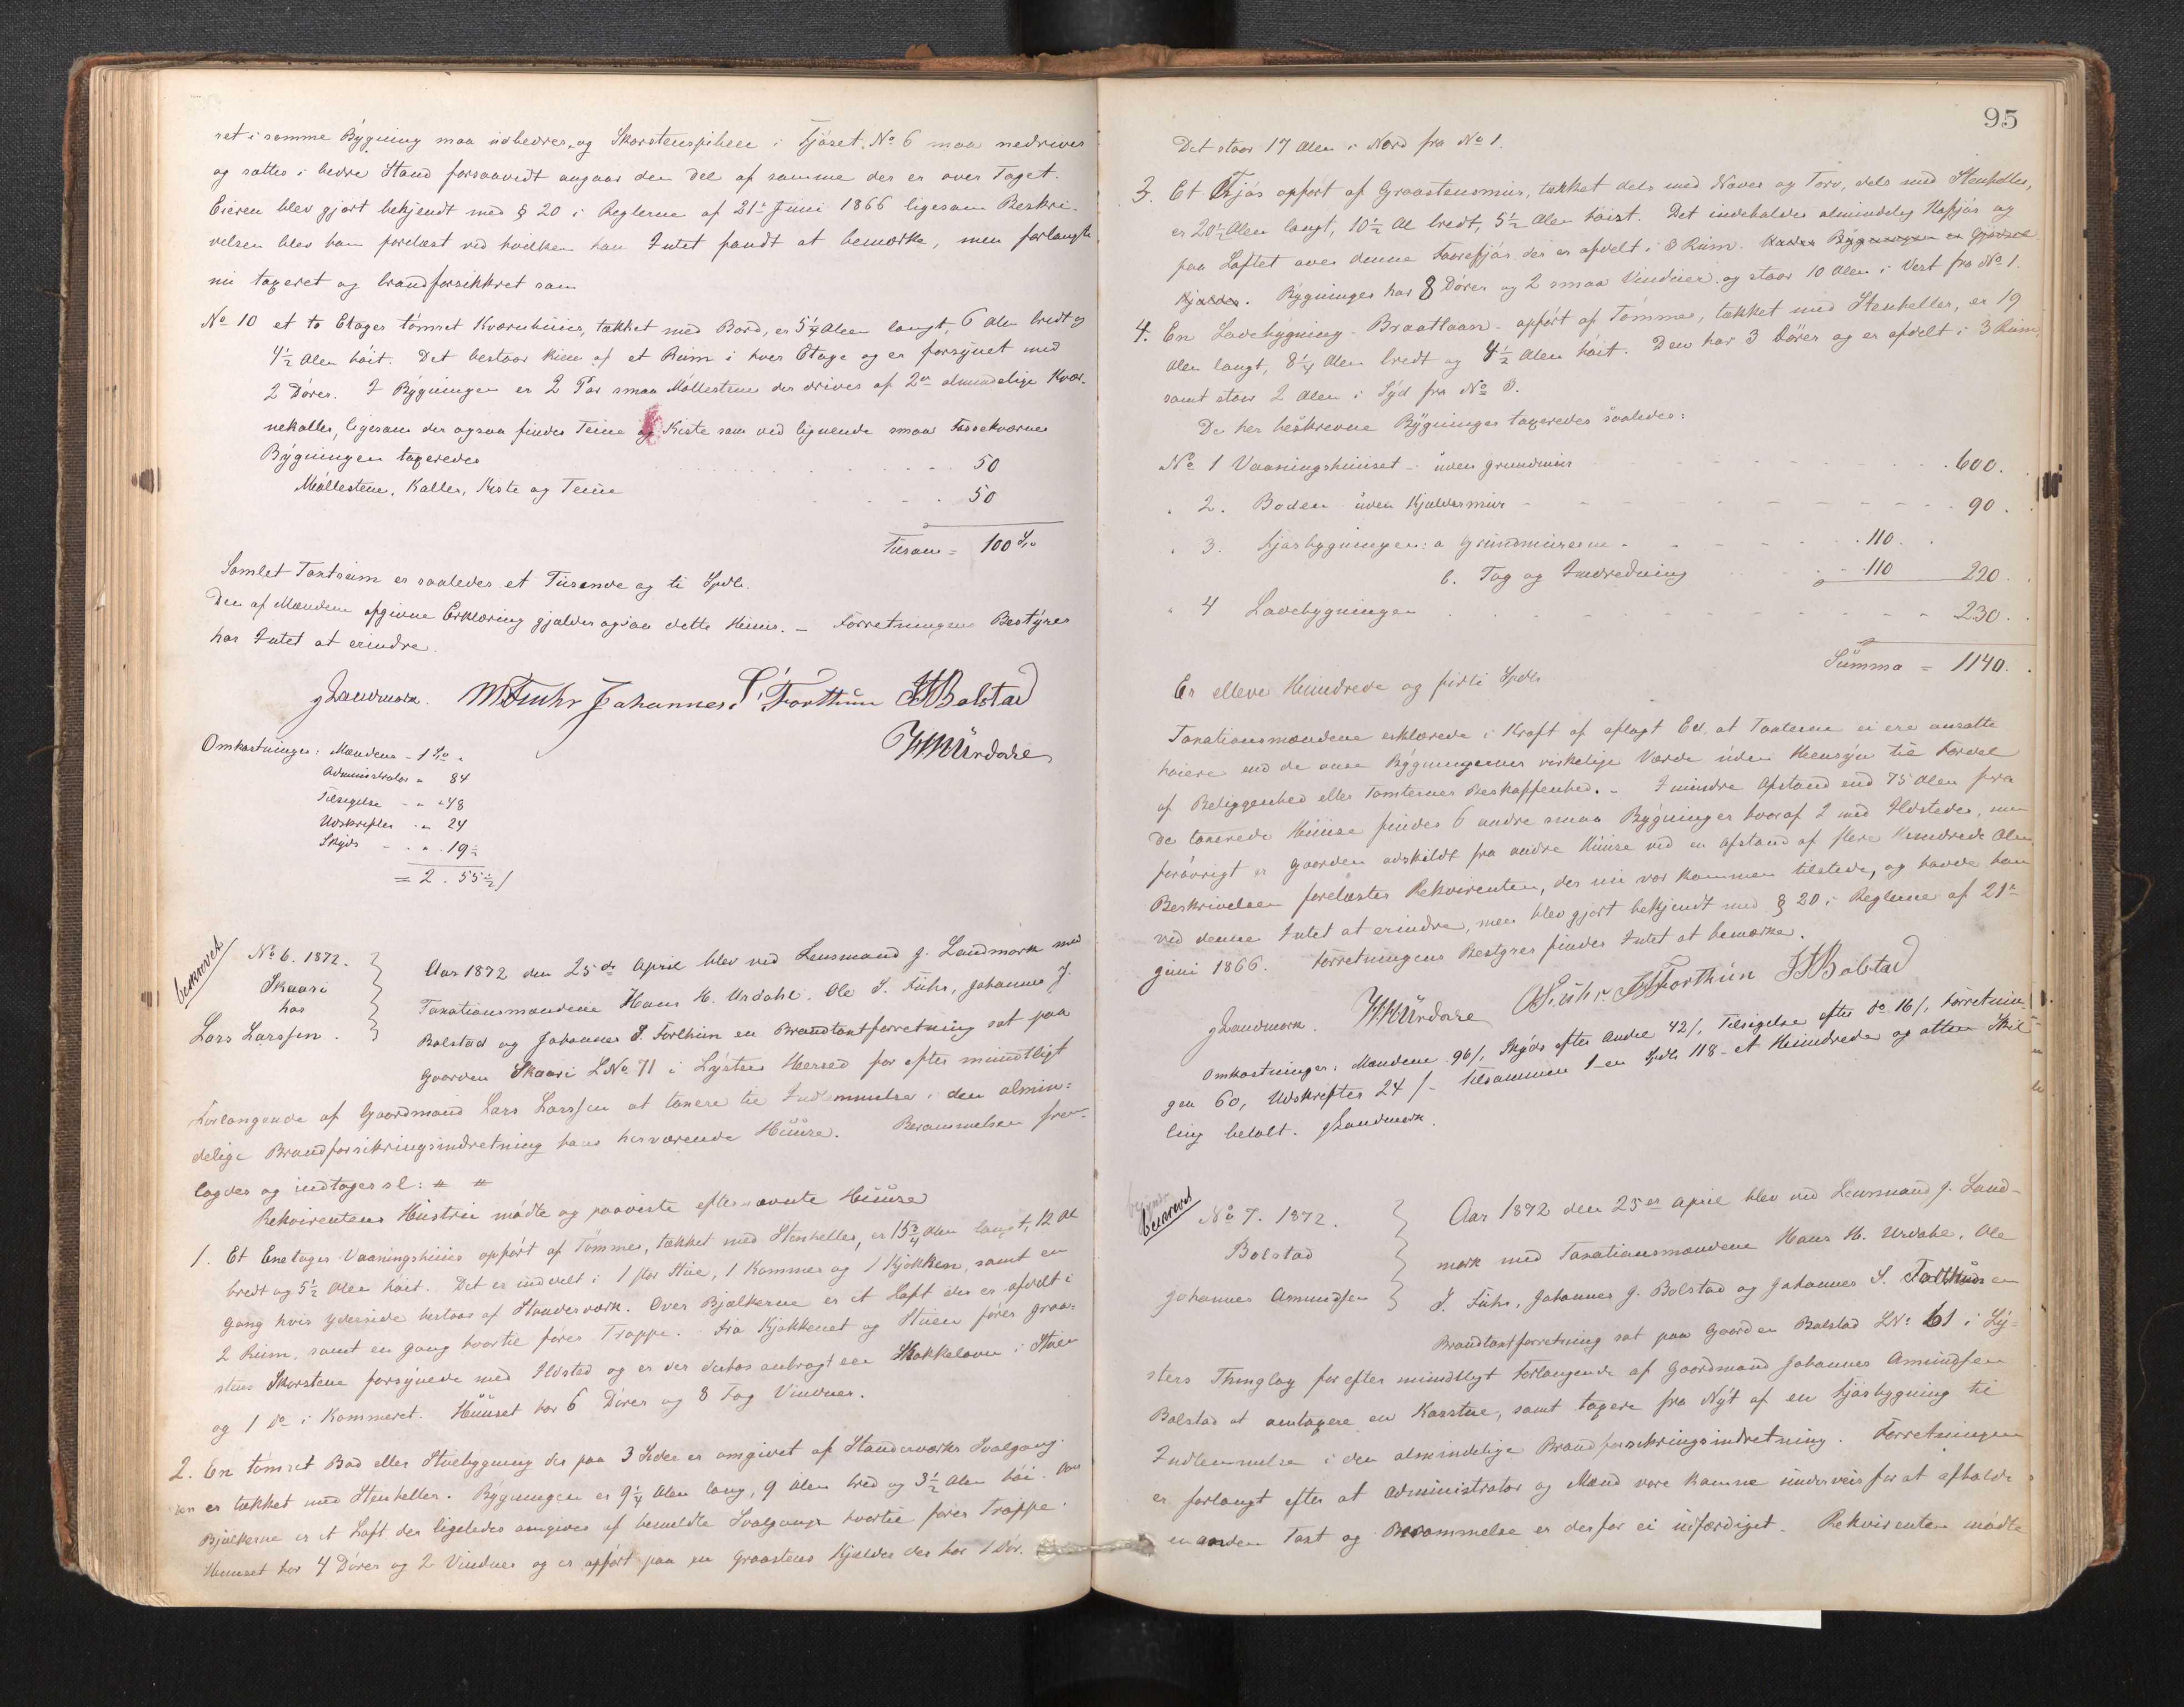 ret i samme Bygning maa udbedres, og Skorstenspiben i Fjøset No 6 maa nedrives
og sættes i bedre Stand forsaavidt angaar den Del af samme der er over Taget.
Eieren blev gjort bekjendt med § 20 i Reglerne af 21de Juni 1866 ligesom Beskri-
velsen blev ham forelæst ved hvilken han Intet fandt at bemærke, men forlangte
nu taxeret og brandforsikkret som
No 10 et to Etages tømret Kværnhuus, tækket med Bord, er 5 1/4 Alen langt, 6 Alen bredt og
4 1/2 Alen høit. Det bestaar kun af et Rum i hver Etage og er forsynet med
2 Døre. I Bygningen er 2 Par smaa Møllestene der drives af 2de almindelige Kvær-
nekaller, ligesom der ogsaa findes Teine og Kiste som ved lignende smaa Fossekværne
Bygningen taxeredes 50
Møllestene, Kaller, Kiste og Teine 50
Tilsam = 100 Spd
Samlet Taxtsum er saaledes et Tusende og ti Spdl.
Den af Mændene afgivne Erklæring gjælder ogsaa dette Huus. – Forretningens Bestyrer
har Intet at erindre.
J Landmark. Johannes S. Forthun JJBolstad
HHUrdahl
Omkostninger: Mændene - 1 Spd "
Administrator " 84
Tilsigelse - " 48
Udskrifter - " 24
Skyds - " 19 1/2
= 2. 55 1/2 /
beskrevet
No 6. 1872.
Skaari
hos
Lars Larssen.
Aar 1872 den 25de April blev ved Lensmand J. Landmark med
Taxationsmændene Hans H. Urdahl, Ole S. Fuhr, Johannes J.
Bolstad og Johannes S. Forthun en Brandtaxtforretning sat paa
Gaarden Skaari LNo 71 i Lysters Herred for efter mundtligt
Forlangende af Gaardmand Lars Larssen at taxere til Indlemmelse i den almin-
delige Brandforsikringsindretning hans herværende Huuse. Berammelsen frem-
lagdes og indtages sl: # #
Rekvirentens Hustru mødte og paaviste efternævnte Huuse
1. Et Enetages Vaaningshuus opført af Tømmer, tækket med Stenheller, er 15 3/4 Alen langt, 12 Al
bredt og 5 1/2 Alen høit. Det er inddelt i 1 stor Stue, 1 Kammer og 1 Kjøkken, samt en
Gang hvis Yderside bestaar af Standerværk. Over Bjælkerne er et Loft der er afdelt i
2 Rum, samt en Gang hvortil fører Trappe. Fra Kjøkkenet og Stuen fører graa-
stens Skorstene forsynede med Ildsted og er der derhos anbragt een Kakkelovn i Stuen
og 1 do i Kammeret. Huuset har 6 Døre og 8 Fag Vinduer.
2. En tømret Bod eller Stuebygning der paa 3 Sider er omgivet af Standerværks Svalgang
den er tækket med Stenheller. Bygningen er 9 1/4 Alen lang, 9 Alen bred og 3 1/2 Alen høi. Over
Bjælkerne er et Loft der ligeledes omgives af bemeldte Svalgange hvortil fører Trappe.
Huuset har 4 Døre og 2 Vinduer og er opført paa en Graastens Kjælder der har 1 Dør.
95
Det staar 17 Alen i Nord fra No 1.
3. Et Fjøs opført af Graastensmur, tækket dels med Næver og Torv, dels med Stenheller,
er 20 1/2 Alen langt, 10 1/2 Al bredt, 5 1/2 Alen høit. Det indeholder almindelig Kofjøs og
paa Loftet over denne Faarefjøs der er afdelt i 3 Rum. Under Bygningen er Gjødsel
Kjælder. Bygningen har 8 Døre og 2 smaa Vinduer og staar 10 Alen i Vest fra No 1.
4. En Ladebygning - Braatlaan - opført af Tømmer, tækket med Stenheller, er 19
Alen langt, 8 1/4 Alen bredt og 4 1/2 Alen høit. Den har 3 Døre og er afdelt i 3 Rum
samt staar 2 Alen i Syd fra No 3.
De her beskrevne Bygninger taxeredes saaledes:
No 1 Vaaningshuuset - uden grundmur 600.
" 2. Boden uden Kjeldermur 90.
" 3. Fjøsbygningen: a Grundmurene 110.
b. Tag og Indredning 110 220.
" 4 Ladebygningen 230.
Summa = 1140.
Er elleve Hundrede og firti Spdl.
Taxationsmændene erklærede i Kraft af aflagt Ed, at Taxterne ei ere ansatte
høiere end de ansee Bygningernes virkelige Værdi uden Hensyn til Fordel
af Beliggenhed eller Tomternes Beskaffenhed. – I mindre Afstand end 75 Alen fra
de taxerede Huuse findes 6 andre smaa Bygninger hvoraf 2 med Ildsteder, men
forøvrigt er Gaarden adskildt fra andre Huuse ved en Afstand af flere Hundrede Alen
Beskrivelsen forelæstes Rekvirenten, der nu var kommen tilstede, og havde han
ved denne Intet at erindre, men blev gjort bekjendt med § 20 i Reglerne af 21de
Juni 1866. Forretningens Bestyrer findes Intet at bemærke.
J Landmark. HHUrdahl OSFuhr JSForthun JJBolstad
Omkostninger: Mændene 96/, Skyds efter Andel 42/, Tilsigelse efter do 16/, Forretnin-
gen 60, Udskrifter 24 /- Tilsammen 1 - en Spdl 118 - et Hundrede og atten Skil-
ling betalt. JLandmark.
beskrevet
No 7. 1872.
Bolstad
Johannes Amundsen
Aar 1872 den 25de April blev ved Lensmand J. Land-
mark med Taxationsmændene Hans H. Urdahl, Ole
S. Fuhr, Johannes J. Bolstad og Johannes S. Forthun en
Brandtaxtforretning sat paa Gaarden Bolstad LNo 61 i Ly-
sters Thinglag for efter mundtligt Forlangende af Gaardmand Johannes Amundsen
Bolstad at omtaxere en Karstue, samt taxere fra Nyt af en Fjøsbygning til
Indlemmelse i den almindelige Brandforsikringsindretning. Forretningen
er forlangt efter at Administrator og Mænd vare komne underveis for at afholde
en anden Taxt og Berammelse er derfor ei udfærdiget. Rekvirenten mødte